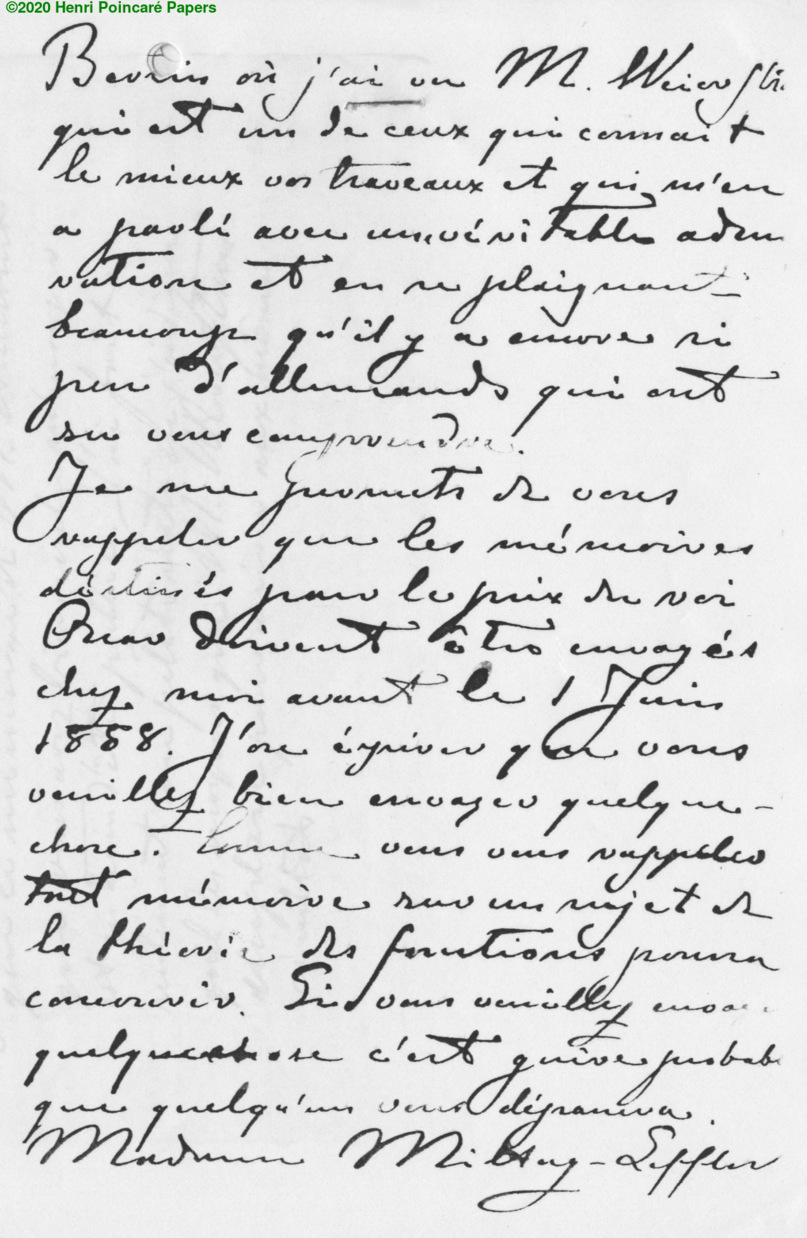 ©2020 Henri Poincaré Papers
Berlin où j'ai vu M. Weierstr
qui est un de ceux qui connait
le mieux vos traveaux et qui m'en
a parlé avec un véritable admi
ration et en se plaignant
beaucoup qu'il y a encore si
peu d'allemands qui ont
su vous comprendre.
Je me promets de vous
rappeler que les mémoires
déstinés pour le prix du roi
Oscar doivent être envoyés
chez moi avant le 1 Juin
1888. J'ose éspérer que vous
veuillez bien envoyer quelque-
chose. Comme vous vous rappelez
tout mémoire sur un sujet de
la théorie des fonctions pourra
concourir. Si vous veuillez envoye
quelquechose c'est guère probab
que quelqu'un vous dépassera.
Madame Mittag-Leffler